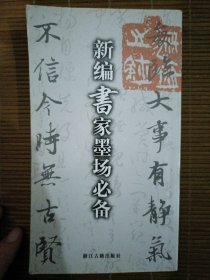 每临大事有静氣
不信今時無古賢
新编書家墨场必备
浙江古籍出版社